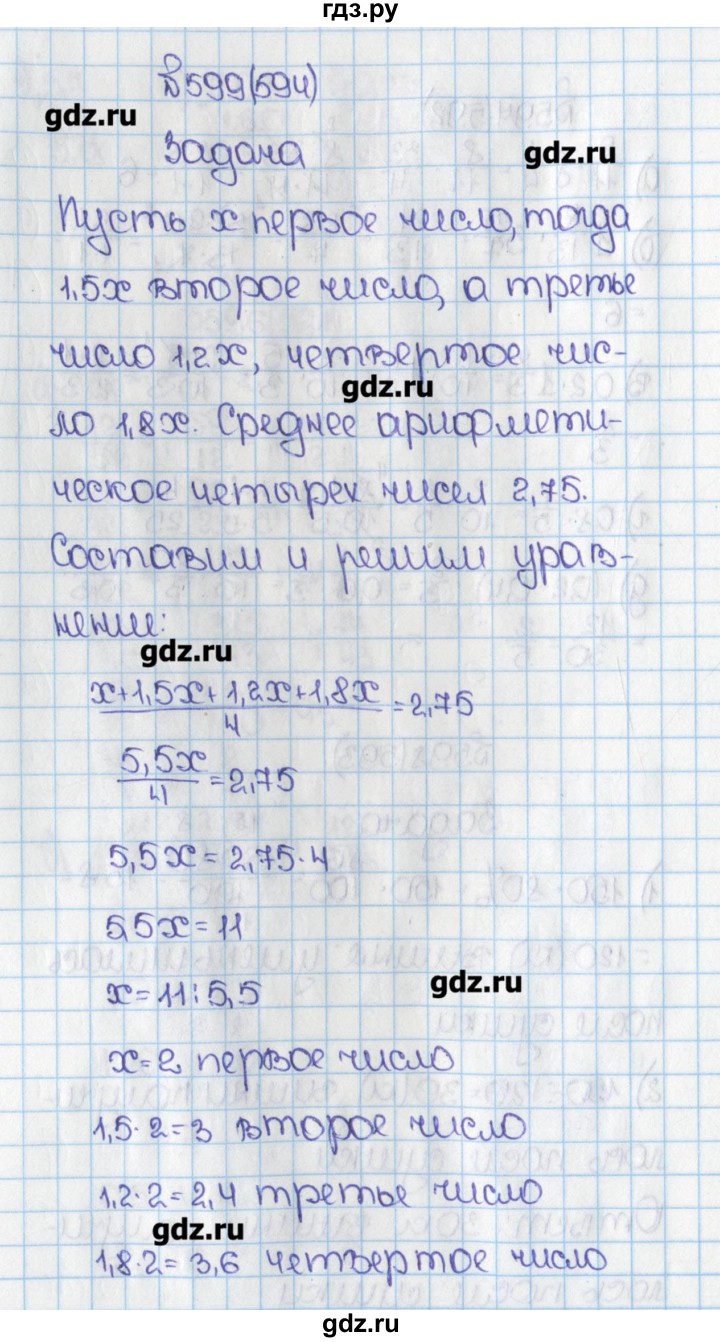 гдз.ру
№599(594)
gdz.ru
Задача
gdz.ru
Пусть x первое число, тогда
1,5x второе число, а третье
число 1,2x, четвертое чис-
gdz.ru
ло 1,8x. Среднее арифмети-
ческое четырех чисел 2,75.
Составим и решим урав-
нение:
gdz.ru
x+1,5x+1,2x+1,8x/4=2,75
5,5x/4=2,75
5,5x=2,75·4
5,5x=11
x=11:5,5
gdz.ru
x=2 первое число
1,5·2=3 второе число
1,2·2=2,4 третье число
gdz.ru
1,8·2=3,6 четвертое число
гдз.ру